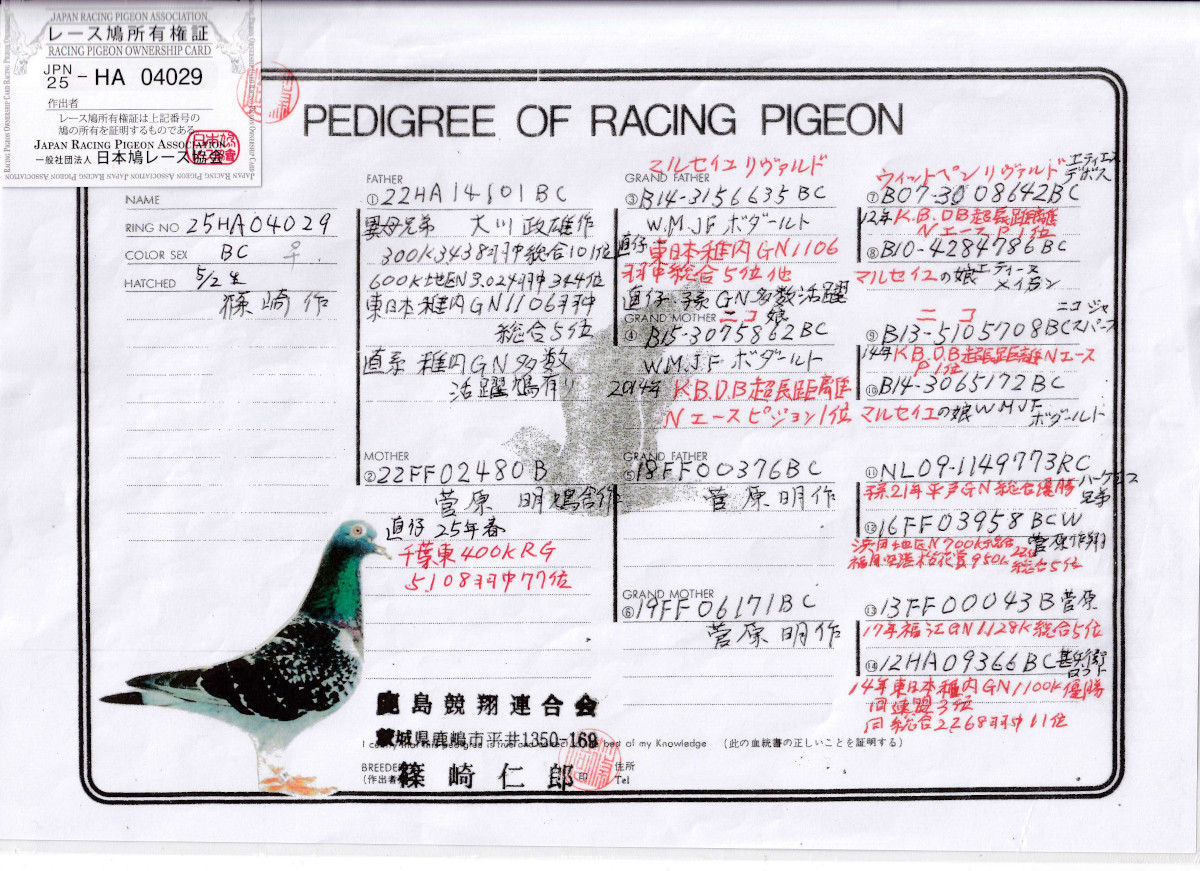 JAPAN RACING PIGEON ASSOCIATION
レース鳩所有権証
RACING PIGEON OWNERSHIP CARD
JPN 25 - HA 04029
作出者
レース鳩所有権証は上記番号の
鳩の所有を証明するものである
JAPAN RACING PIGEON ASSOCIATION
一般社団法人 日本鳩レース協会
PEDIGREE OF RACING PIGEON
NAME
RING NO 25HA04029
COLOR SEX BC ♀
HATCHED 5/2生
篠崎作
FATHER
①22HA14601BC
異母兄弟 大川政雄作
300K3438羽中総合10位
600K地区N3.024羽中344位
東日本稚内GN1106羽中
総合5位
直系稚内GN多数
活躍鳩有り
MOTHER
②22FF02480B
菅原明鳩舎作
直仔25年春
千葉東400KRG
5108羽中77位
マルセイユリヴァルド
GRAND FATHER
③B14-3156635BC
W.M.J.Fボダールト
直仔東日本稚内GN1106
羽中総合5位他
直仔孫GN多数活躍
GRAND MOTHER ニコ娘
④B15-3075862BC
W.M.J.Fボダールト
2014年 K.B.D.B超長距離
Nエースピジョン1位
GRAND FATHER
⑤18FF00376BC
菅原明作
GRAND MOTHER
⑥19FF06171BC
菅原明作
ウィットペンリヴァルド エディエス デボス
⑦B07-3008642BC
12年K.B.DB超長距離
NエースP1位
⑧B10-4284786BC
マルセイユの娘
ニコ
⑨B13-5105708BC
14年K.B.D.B超長距離Nエース
P1位
⑩B14-3065172BC
マルセイユの娘WMJF ボダールト
⑪NL09-1149773RC
孫21年平戸GN総合優勝 兄弟
⑫16FF03958BCW
菅原作翔
総合5位
⑬13FF00043B菅原
17年福江GN1.128K総合5位
⑭12HA09366BC
14年東日本稚内GN1100K優勝
同連盟3位
同総合2268羽中11位
鹿島競翔連合会
茨城県鹿嶋市平井1350-169
I certify that this pedigree is true and best of my Knowledge (此の血統書の正しいことを証明する)
BREEDER
(作出者) 篠崎仁郎 印
住所
Tel